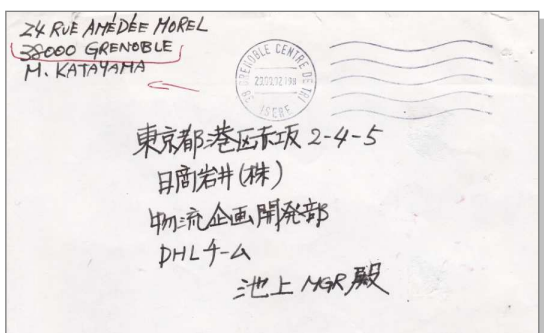 24 RUE AMÉDÉE MOREL
38000 GRENOBLE
M. KATAYAMA
38 GRENOBLE CENTRE DE TRI
ISERE
東京都港区赤坂 2-4-5
日商岩井(株)
物流企画開発部
DHLチーム
池上 MGR 殿